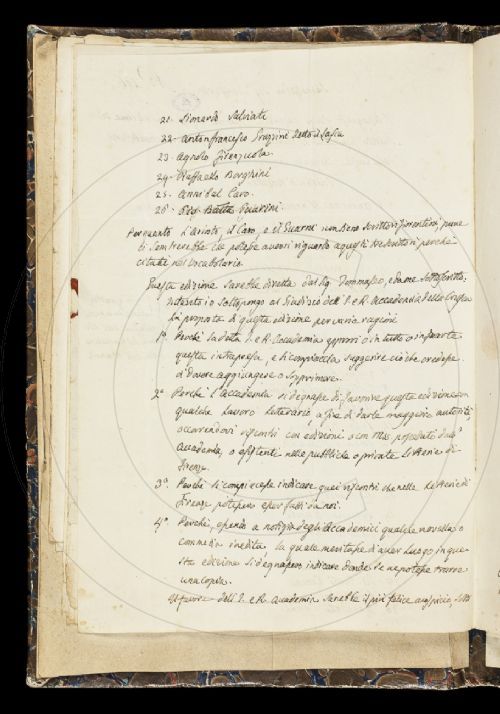 21. Lionardo Salviati
22. Antonfrancesco Grazzini detto il Lasca
23. Agnolo Firenzuola
24. Raffaello Borghini
25. Annibal Caro.
26. Batta Guarini.
Perquanto L'Ariosto, il Caro, e il Guarini non sieno scrittori fiorentini, pure
sembrerebbe che potesse aversi riguardo a questi tre scrittori perchè
citati nel Vocabolario.
Questa edizione sarebbe diretta dal Sig. Tommaseo, e da me sottoscritto;
intanto io sottopongo al Giudizio dell' I. e R. Accademia della Crusca
la proposta di questa edizione per varie ragioni
1º Perchè la data I. e R. Accademia approvi o in tutto o in parte
questa intrapresa, e si compiaccia suggerire ciò che credesse
di dovere aggiungere o sopprimere.
2º Perchè l'Accademia si degnasse di favorire questa edizione con
qualche lavoro letterario a fine di darle maggiore autorità,
occorrendovi riscontri con edizioni o con Mss. posseduti dall'
Accademia, o esistenti nelle pubbliche o private Librerie di
Firenze.
3º Perchè si compiacesse indicare quei riscontri che nelle Librerie di
Firenze potessero esser fatti da noi.
4º Perchè, essendo a notizia degli Accademici qualche novella o
commedia inedita la quale meritasse di aver luogo in que-
sta edizione si degnassero indicare donde se ne potesse trarre
una copia.
Il favore dell' I. e R. Accademia sarebbe il più felice auspicio, sotto